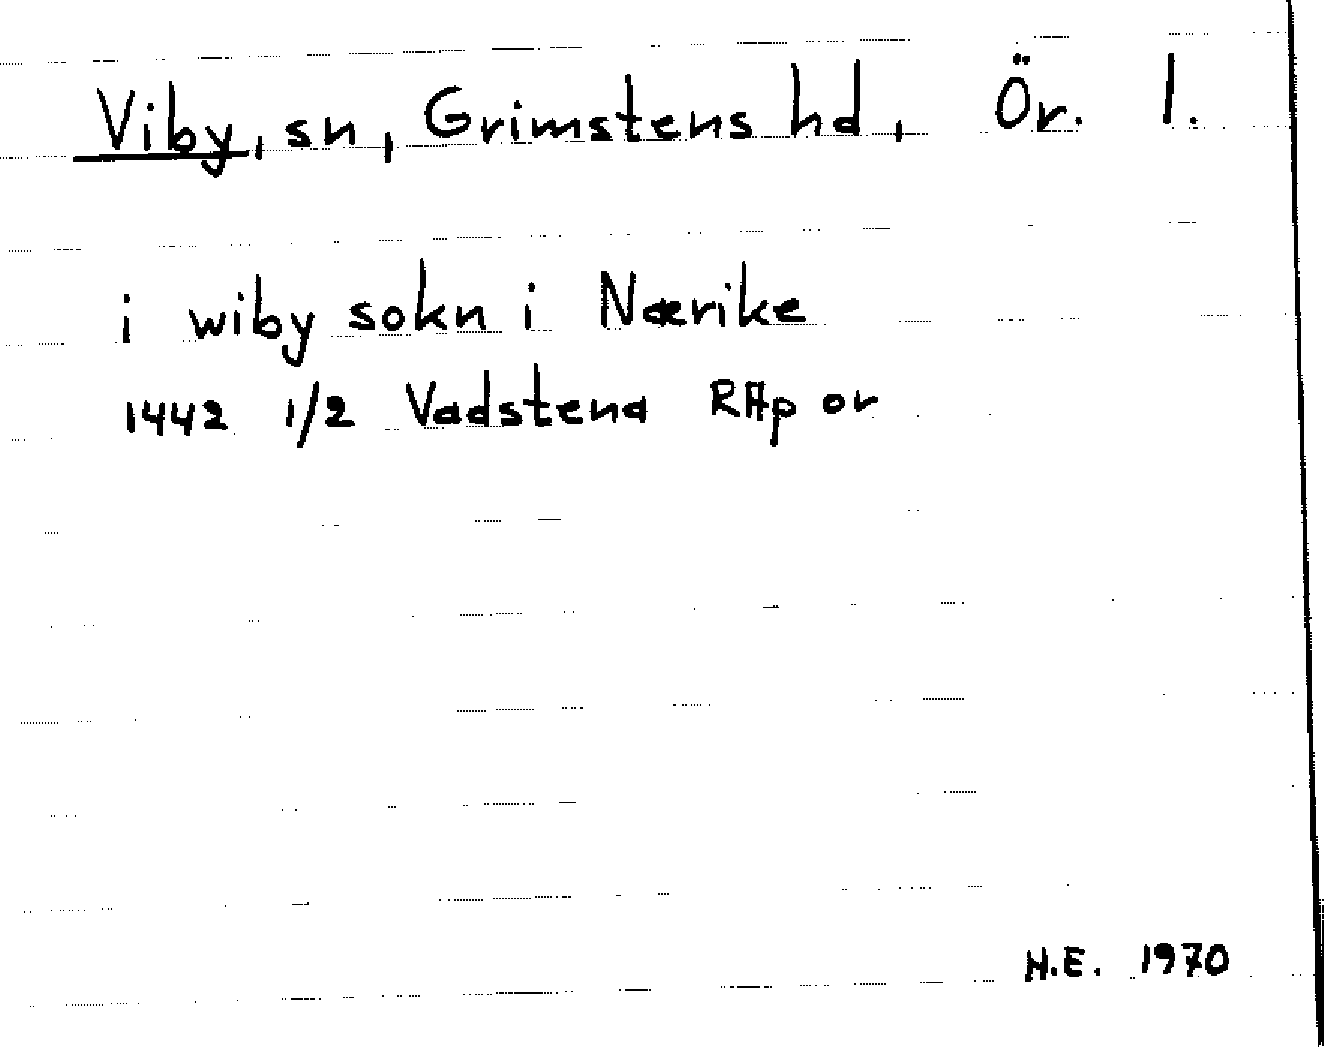 Viby, sn, Grimstens hd, Ör. l.
i wiby sokn i Nærike
1442 1/2 Vadstena RAp or
H.E. 1970